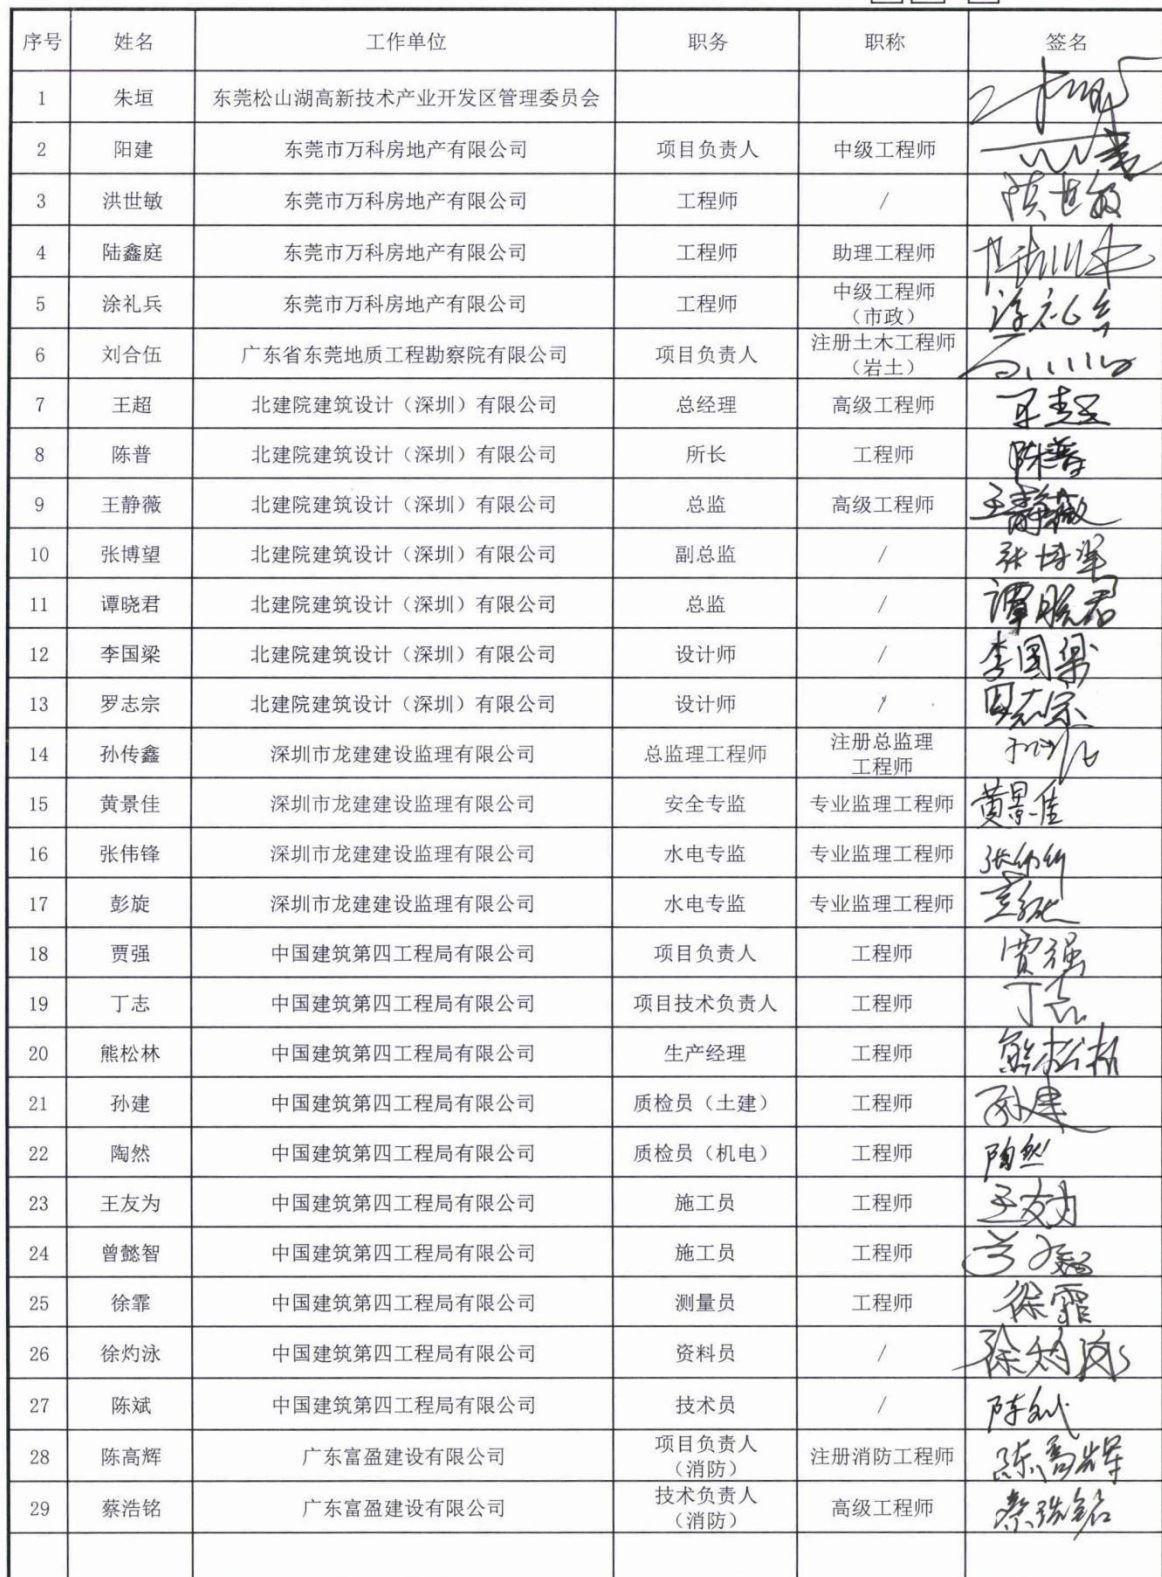 序号 姓名 工作单位 职务 职称 签名
1 朱垣 东莞松山湖高新技术产业开发区管理委员会
2 阳建 东莞市万科房地产有限公司 项目负责人 中级工程师
3 洪世敏 东莞市万科房地产有限公司 工程师 /
4 陆鑫庭 东莞市万科房地产有限公司 工程师 助理工程师
5 涂礼兵 东莞市万科房地产有限公司 工程师 中级工程师
（市政）
6 刘合伍 广东省东莞地质工程勘察院有限公司 项目负责人 注册土木工程师
（岩土）
7 王超 北建院建筑设计（深圳）有限公司 总经理 高级工程师
8 陈普 北建院建筑设计（深圳）有限公司 所长 工程师 陈普
9 王静薇 北建院建筑设计（深圳）有限公司 总监 高级工程师 王静薇
10 张博望 北建院建筑设计（深圳）有限公司 副总监 / 张博望
11 谭晓君 北建院建筑设计（深圳）有限公司 总监 / 谭晓君
12 李国梁 北建院建筑设计（深圳）有限公司 设计师 / 李国梁
13 罗志宗 北建院建筑设计（深圳）有限公司 设计师 / 罗志宗
14 孙传鑫 深圳市龙建建设监理有限公司 总监理工程师 注册总监理
工程师
15 黄景佳 深圳市龙建建设监理有限公司 安全专监 专业监理工程师 黄景佳
16 张伟锋 深圳市龙建建设监理有限公司 水电专监 专业监理工程师
17 彭旋 深圳市龙建建设监理有限公司 水电专监 专业监理工程师
18 贾强 中国建筑第四工程局有限公司 项目负责人 工程师 贾强
19 丁志 中国建筑第四工程局有限公司 项目技术负责人 工程师 丁志
20 熊松林 中国建筑第四工程局有限公司 生产经理 工程师 熊松林
21 孙建 中国建筑第四工程局有限公司 质检员（土建） 工程师 孙建
22 陶然 中国建筑第四工程局有限公司 质检员（机电） 工程师 陶然
23 王友为 中国建筑第四工程局有限公司 施工员 工程师 王友为
24 曾懿智 中国建筑第四工程局有限公司 施工员 工程师
25 徐霏 中国建筑第四工程局有限公司 测量员 工程师 徐霏
26 徐灼泳 中国建筑第四工程局有限公司 资料员 / 徐灼泳
27 陈斌 中国建筑第四工程局有限公司 技术员 / 陈斌
28 陈高辉 广东富盈建设有限公司 项目负责人
（消防） 注册消防工程师 陈高辉
29 蔡浩铭 广东富盈建设有限公司 技术负责人
（消防） 高级工程师 蔡浩铭